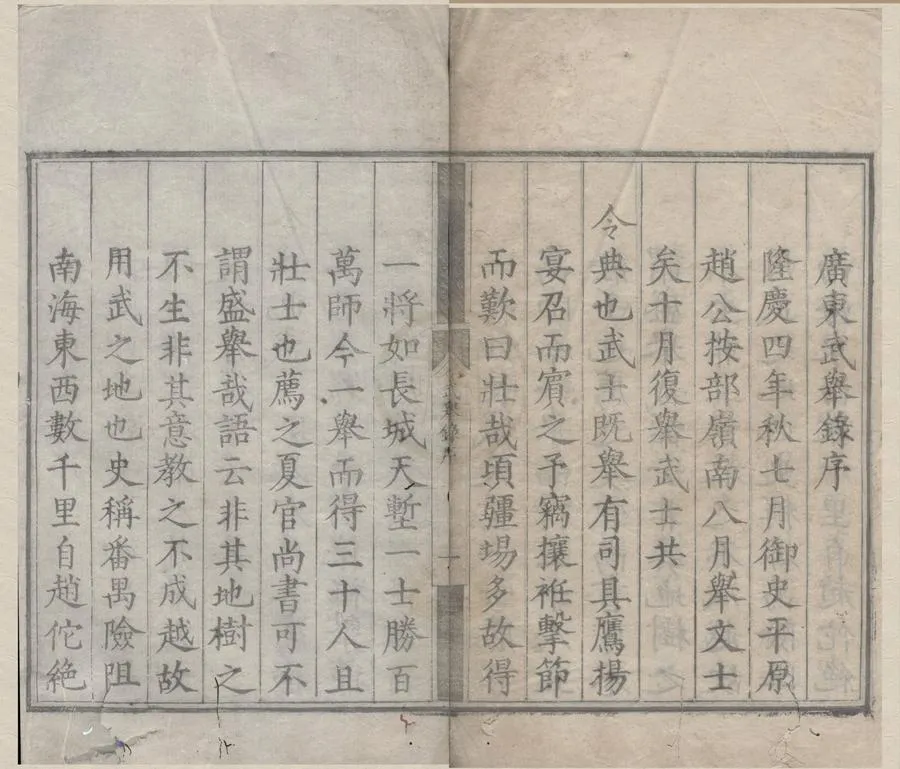 廣東武舉錄序
隆慶四年秋七月御史平原
趙公按部嶺南八月舉文士
矣十月復舉武士共
令典也武士既舉有司具鷹揚
宴召而賓之予竊攘袵擊節
而歎曰壯哉頃疆埸多故得
武舉錄序
一
一將如長城天塹一士勝百
萬師今一舉而得三十人且
壯士也薦之夏官尚書可不
謂盛舉哉語云非其地樹之
不生非其意教之不成越故
用武之地也史稱番禺險阻
南海東西數千里自趙佗絕